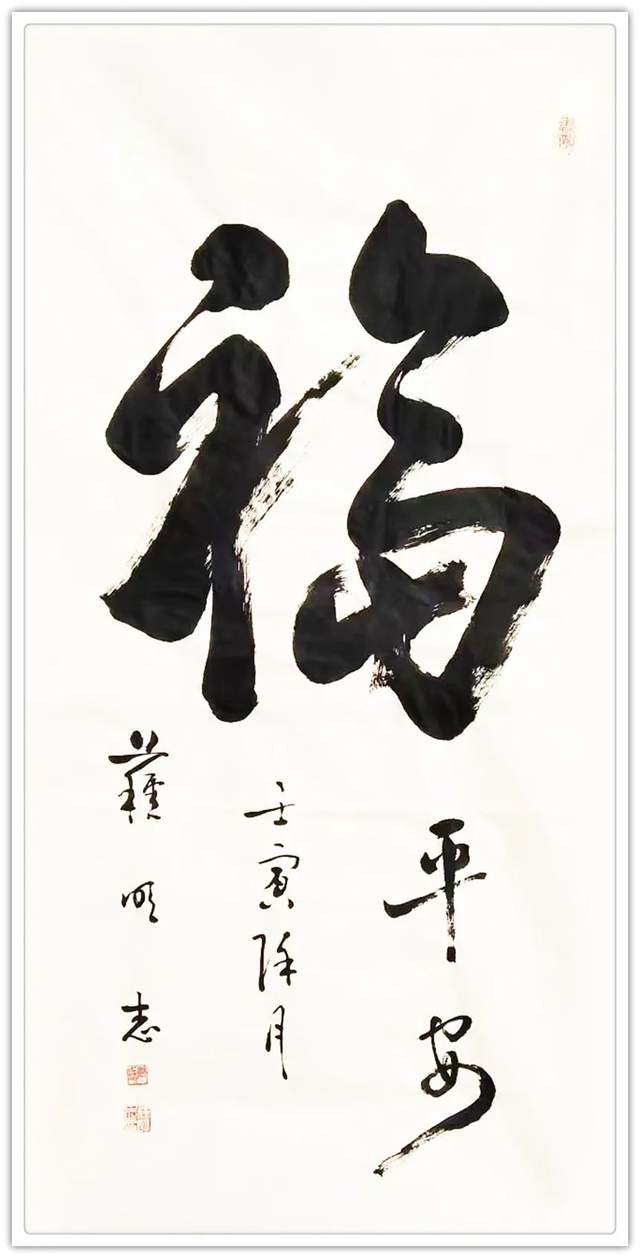 福
平安
壬寅除月
蘓明志